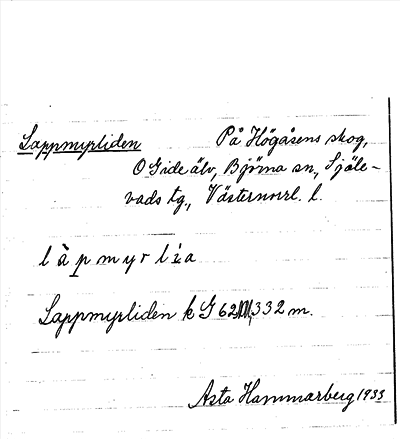 Lappmyrliden På Högåsens skog,
O Gide älv, Björna sn, Själe-
vads tg, Västernorrl. l.
l à p m y r l i a
Lappmyrliden k G 62 332 m.
Asta Hammarberg 1933